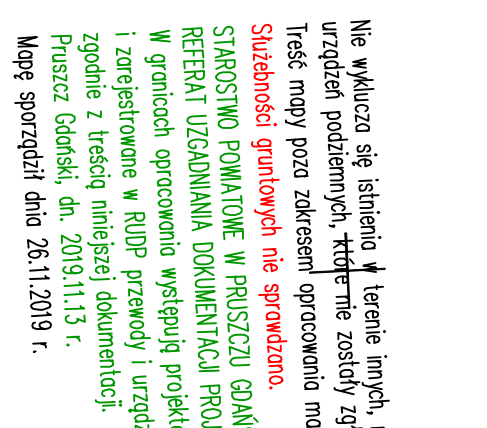 Nie wyklucza się istnienia w terenie innych,
urządzeń podziemnych, które nie zostały
Treść mapy poza zakresem opracowania
Służebności gruntowych nie sprawdzano.
STAROSTWO POWIATOWE W PRUSZCZU
REFERAT UZGADNIANIA DOKUMENTACJI
W granicach opracowania występują
i zarejestrowane w RUDP przewody i
zgodnie z treścią niniejszej dokumentacji.
Pruszcz Gdański, dn. 2019.11.13 r.
Mapę sporządził dnia 26.11.2019 r.